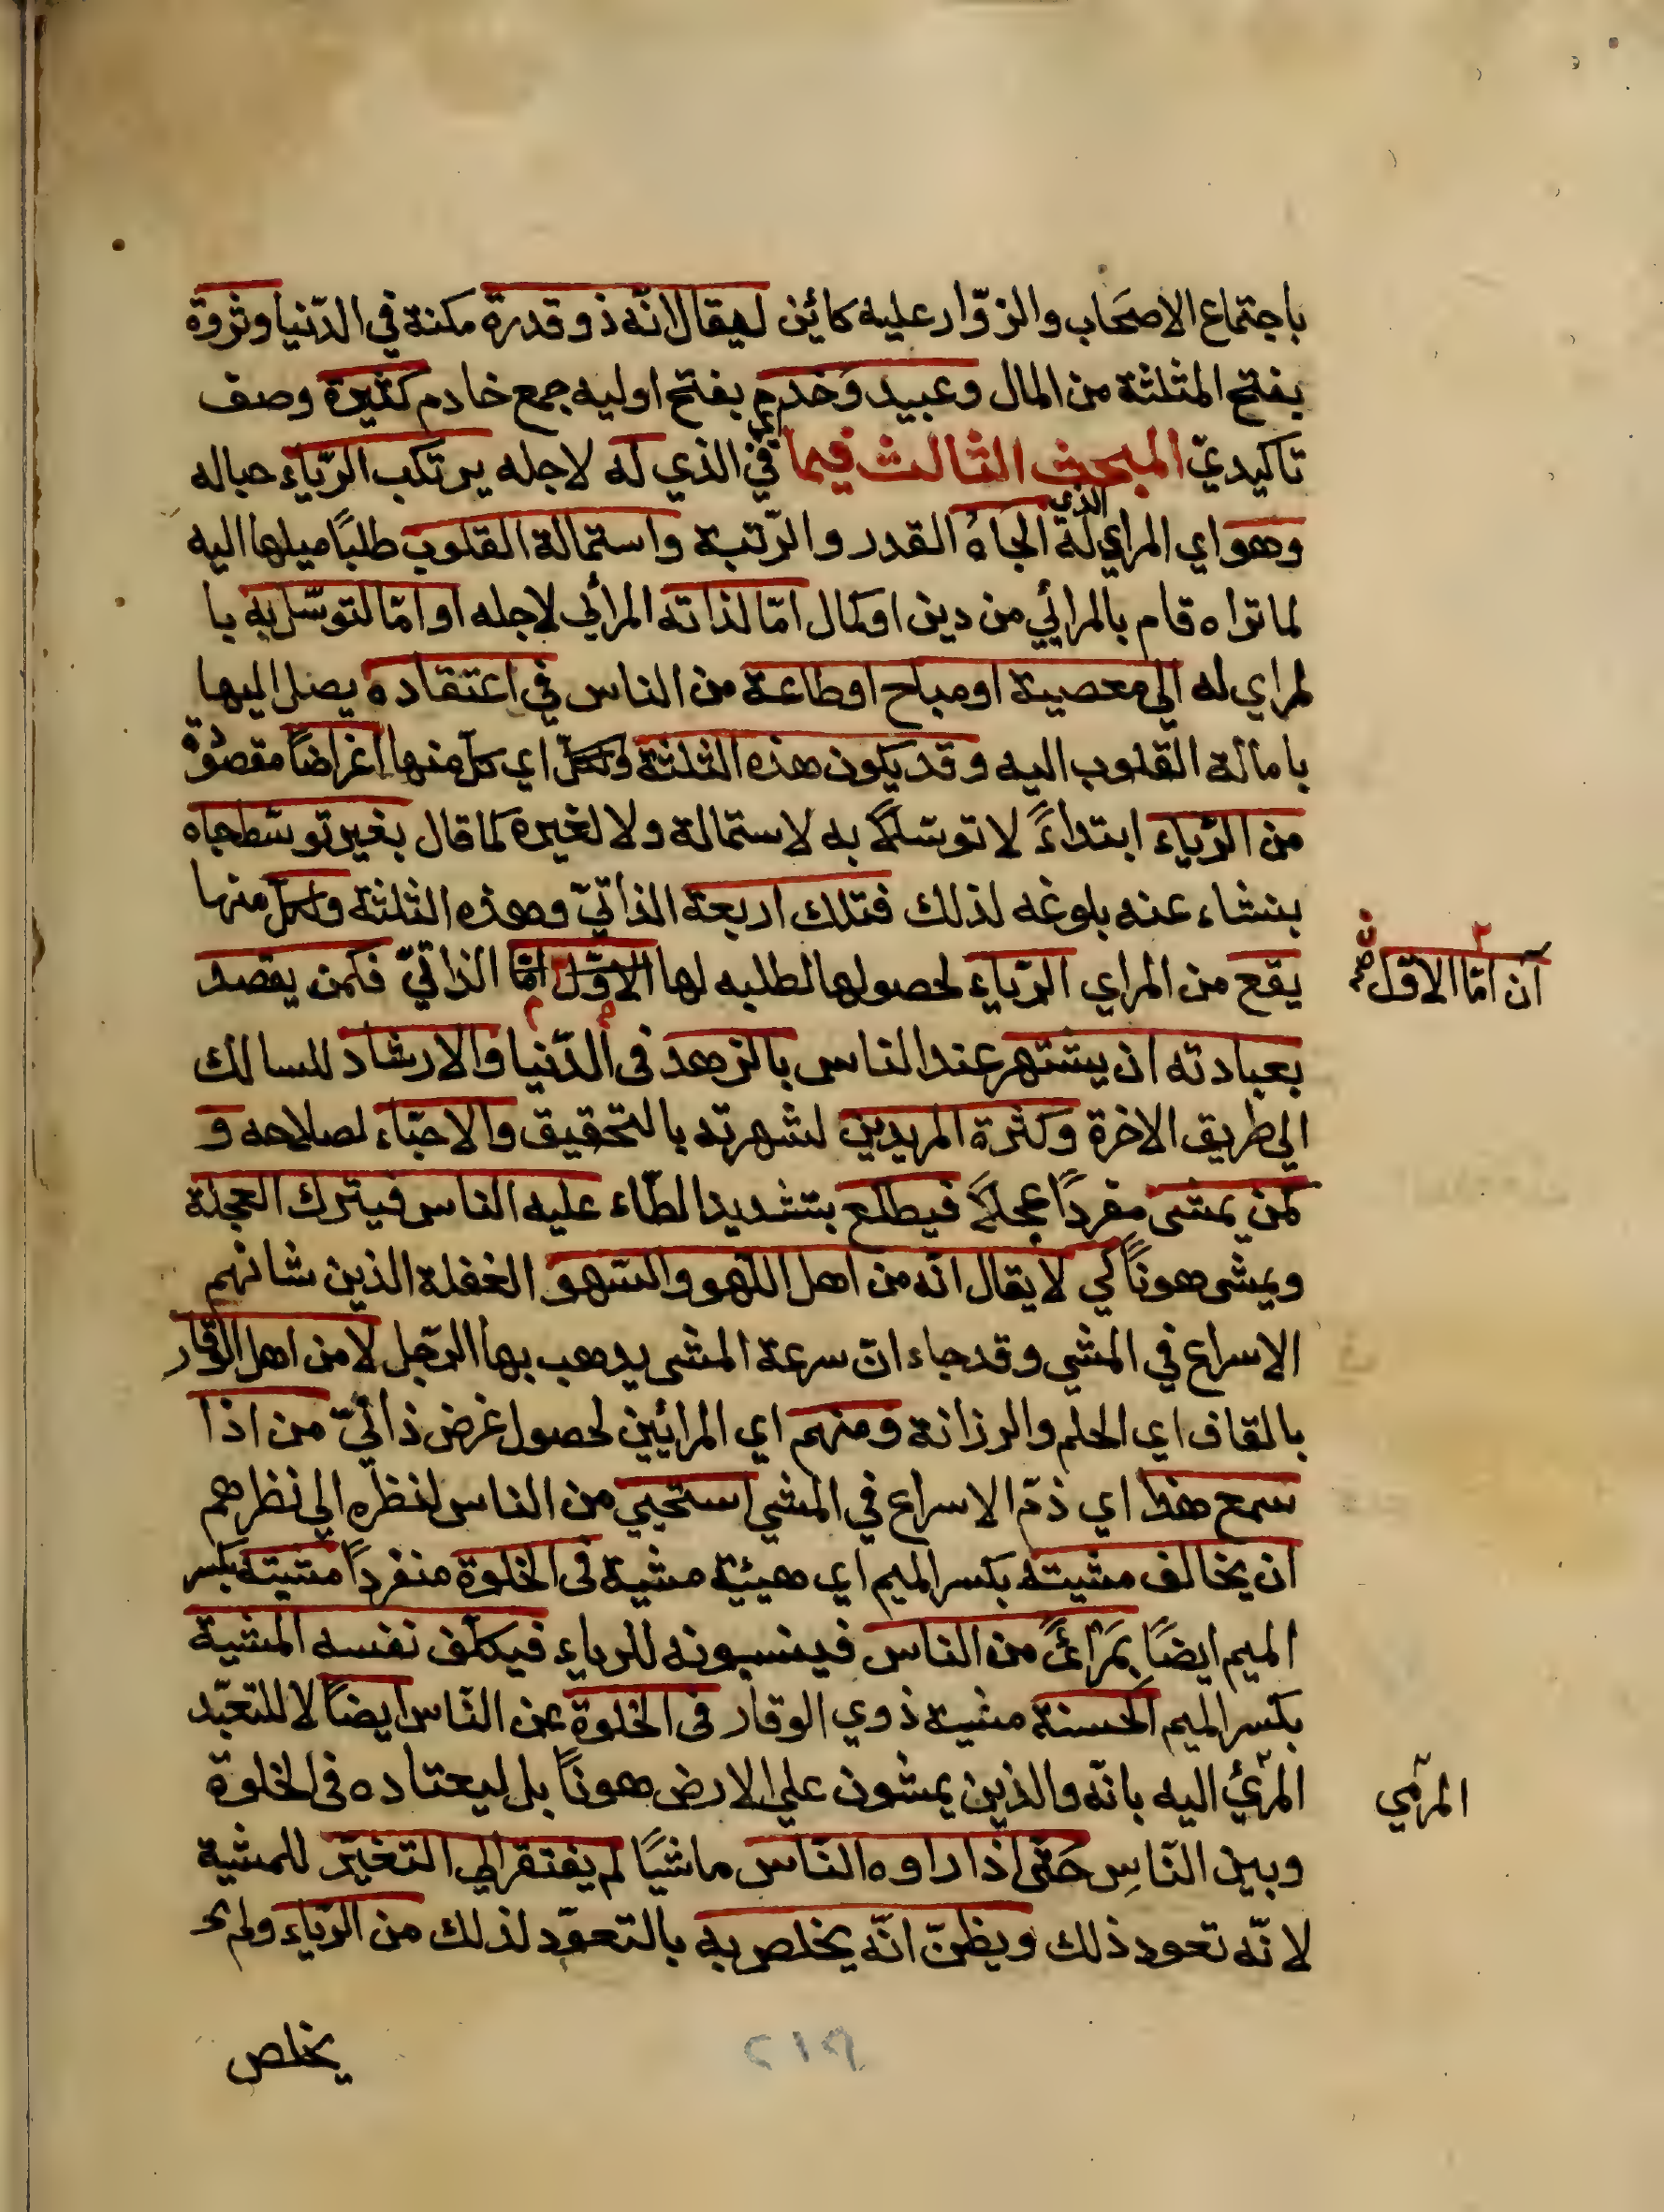 باجتماع الاصحاب والزوّار عليه كائن ليقال انّه ذو قدرة مكنة في الدّنيا وثروة
بفتح المثلثة من المال وعبيد وخدم بفتح اوليه جمع خادم كثيرة وصف
تاكيديّ المبحث الثالث فيما اي في الذي له لاجله يرتكب الرّياء حباله
وهو اي المراي له الذي الجاهُ القدر والرّتبة واستمالة القلوب طلبًا ميلها اليه
لما تراه قام بالمرائي من دين او كمال امّا لذاته المرأي لاجله او امّا لتوسّل به با
لمراي له الي معصية او مباح او طاعة من الناس في اعتقاده يصل اليها
بامالة القلوب اليه وقد يكون هذه الثلثة ولكلّ اي كلّ منها اغراضًا مقصودة
من الرّياء ابتداءً لا توسّلاً به لاستمالة ولا لغيره كما قال بغير توسّط جاه
ينشاء عنه بلوغه لذلك فتلك اربعة الذاتيّ وهذه الثلثة ولكل منها
يقع من المراي الرّياء لحصولها لطلبه لها الاوّل امّا الذاتيّ فكمن يقصد
آن امّا الاوّل صح
بعبادته ان يشتهر عند الناس بالزهد في الدّنيا والارشاد للسالك
الي طريق الاخرة وكثرة المريدين لشهرته بالتحقيق والاحبّاء لصلاحه و
كمن يمشى مفردًا عجلاً فيطلع بتشديد الطّاء عليه الناس فيترك العجلة
ويمشى هونًا كي لا يقال انّه من اهل اللّهو والسّهو الغفلة الذين شانهم
الاسراع في المشي وقد جاء انّ سرعة المشى يدهب بها الرّجل لا من اهل الوقار
بالقاف اي الحلم والرزانة ومنهم اي المرائين لحصول غرض ذاتيّ من اذا
سمع هذا اي ذمّ الاسراع في المشي استحيي من الناس لنظره الي نظرهم
ان يخالف مشيته بكسر الميم اي هيئة مشية في الخلوة منفردًا مشيته بكسر
الميم ايضًا بمَرْائً من الناس فينسبونه للرياء فيكلف نفسه المشية
بكسر الميم الحسنة مشية ذوي الوقار في الخلوة عن النّاس ايضًا لا للتعبّد
المرئ اليه بانّه والذين يمشون علي الارض هونًا بل ليعتاده في الخلوة
المرمي
وبين النّاسِ حتّى اذا راوه النّاس ماشيًا لم يفتقر الي التغيّر للمشية
لانّه تعود ذلك ويظنّ انّه يخلص به بالتعوّد لذلك من الرّياء ولم يح
يخلص
٢١٩